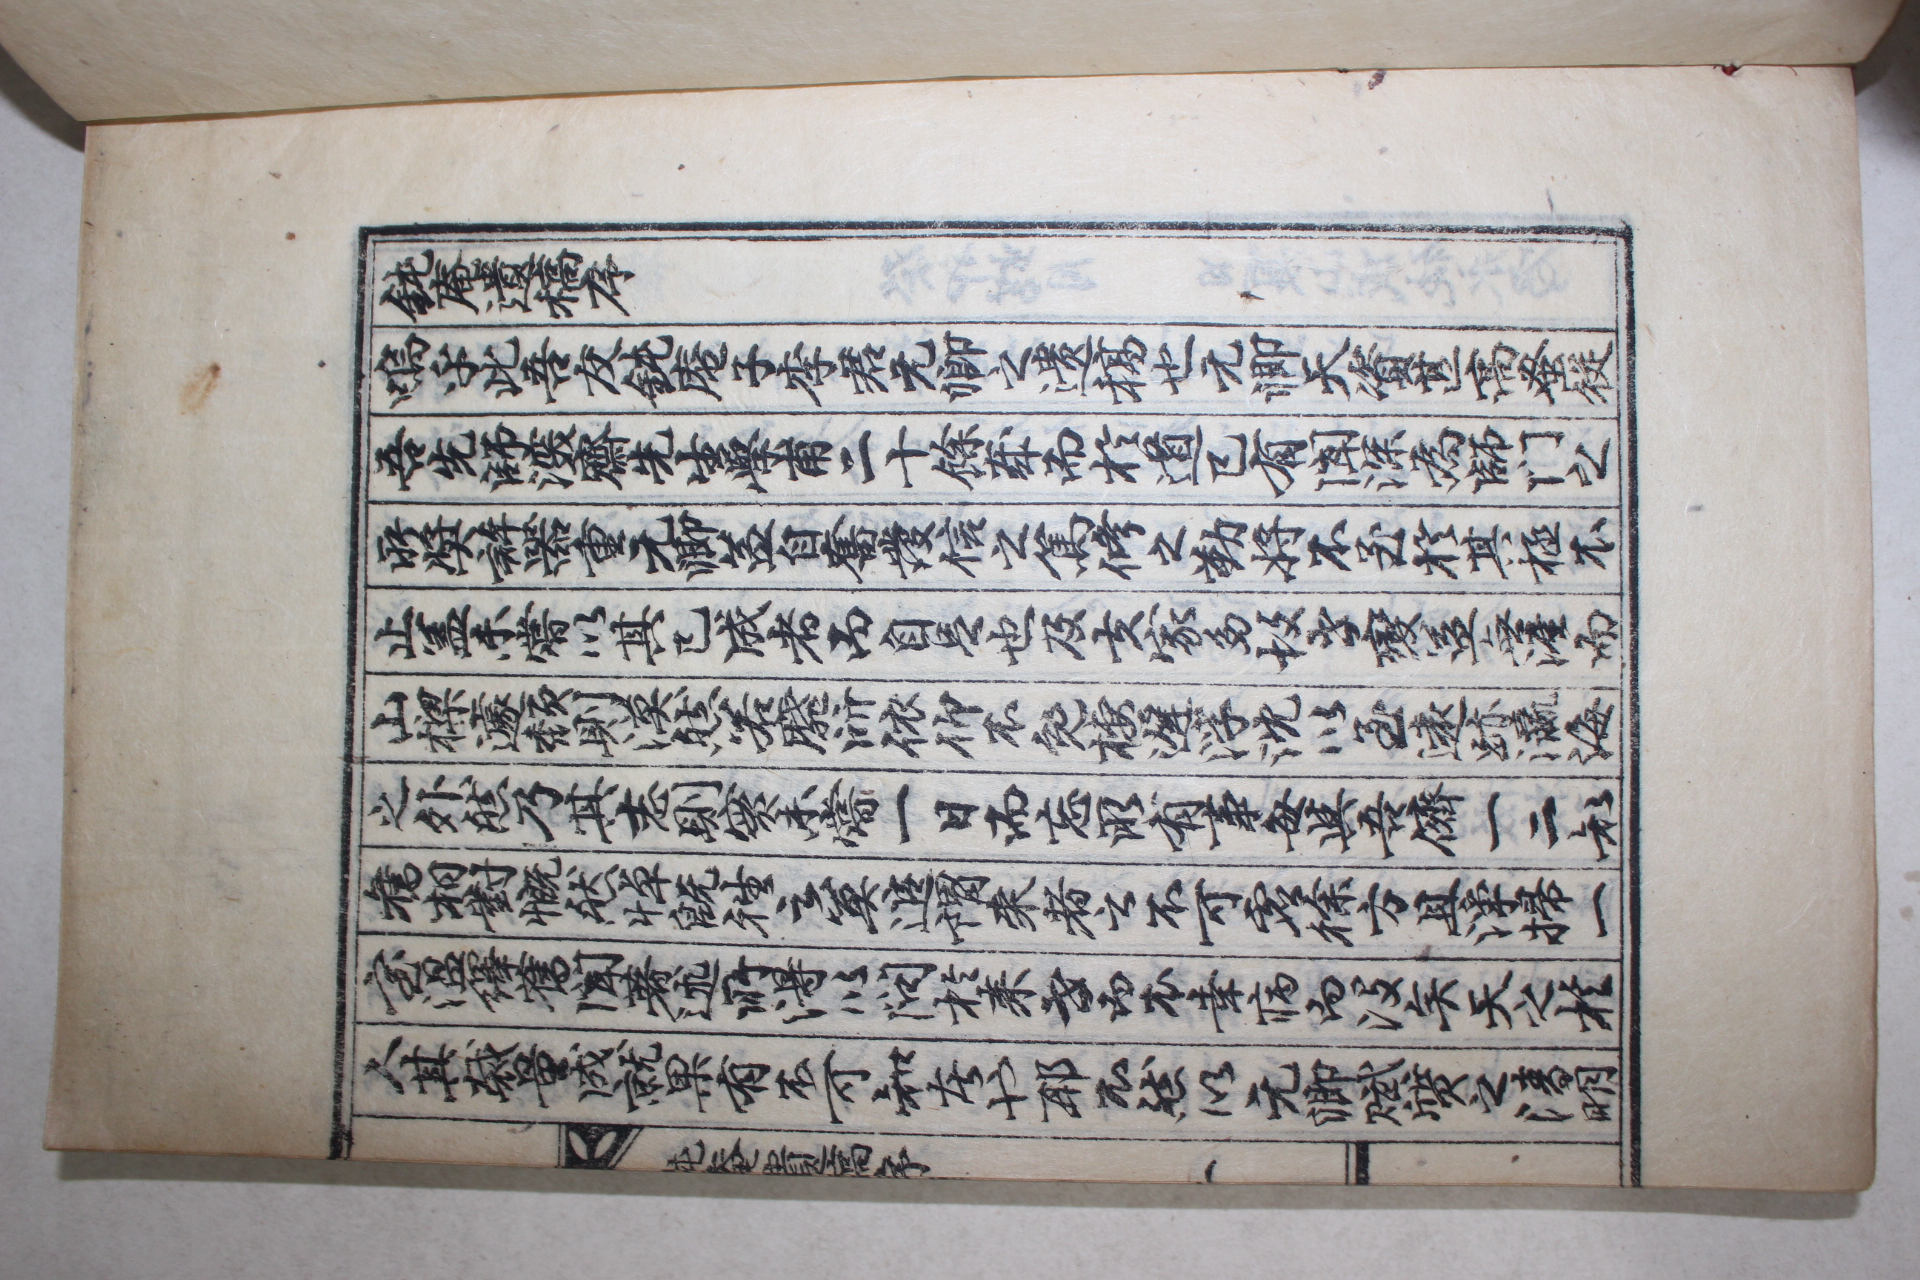 鈍庵遺稿序
嗚乎此吾友鈍庵子李君元卿之遺稿也元卿天資甚高蚤從
吾先師淵齋先生學甫二十餘歲而於道已有聞深爲師門之
所奬許器重元卿益自奮發信之篤修之勤將不至於其極不
止盖未嘗以其已成者而自足也及夫家多故世變益無涯而
山樑遽頹則漠然若靡所依仰不免棲遲浮沈以至遠跡瀛海
之外然乃其志則實未嘗一日而忘所有事每與吾儕一二知
舊相對慨然悼旣往之莫追謂來者之不可虛徐方且淨掃一
室溫繹舊聞著述所得以問於來世而不幸病而沒矣天之於
人其裁量成就果有不可知者也耶不然以元卿賦質之淸明
鈍庵遺稿序
一